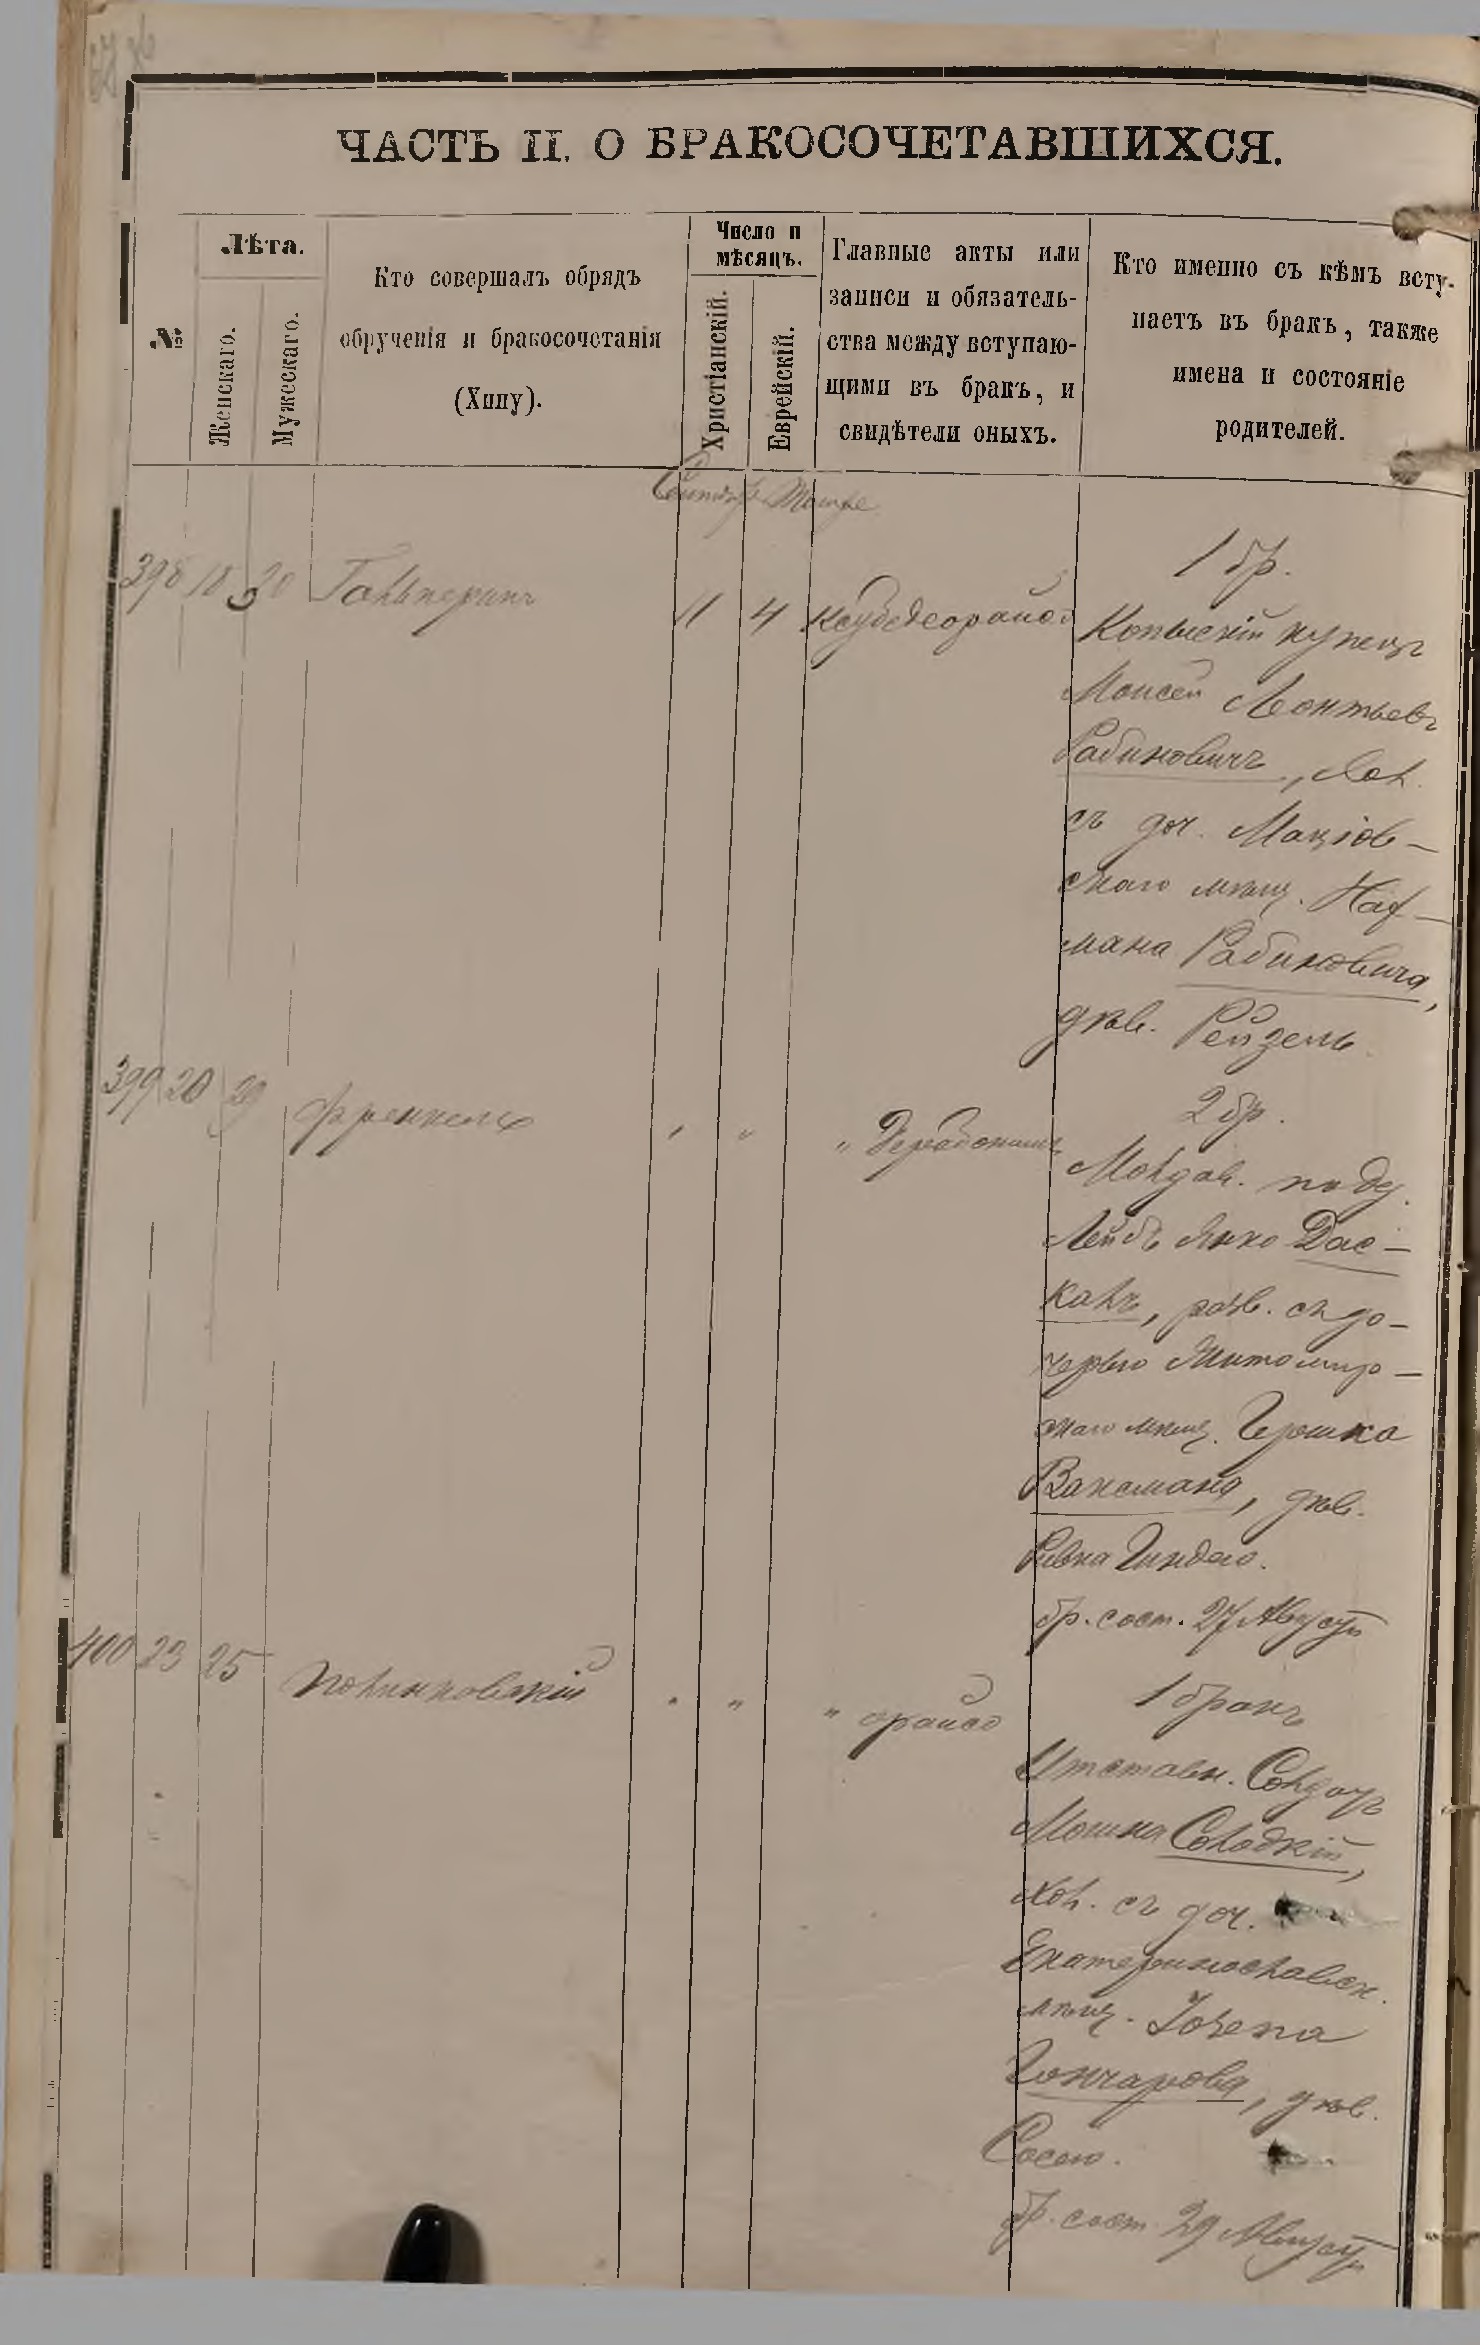 ЧАСТЬ II. О БРАКОСОЧЕТАВШИХСЯ.
№
Лѣта.
Женскаго.
Мужескаго.
Кто совершалъ обрядъ
обрученія и бракосочетанія
(Хипу).
Число и
мѣсяцъ.
Христіанскій.
Еврейскій.
Главные акты или
записи и обязатель-
ства между вступаю-
щими въ бракъ, и
свидѣтели оныхъ.
Кто именно съ кѣмъ всту-
паетъ въ бракъ, также
имена и состояніе
родителей.
398 18 20 Гальперинъ 11 4
1 бр.
Копысскій купецъ
Моисей Леонтьевъ
Рабиновичъ, хол.
съ доч. Маціов-
скаго мѣщ. Нах-
мана Рабиновича,
дѣв. Рейзель
399 20 29 Френкель " " "
2 бр.
Молдав. подд.
Лейбъ Янко Дас-
калъ, разв. съ до-
черью Житомир-
скаго мѣщ. Гершка
Ваксмана, дѣв.
Ривка Гиндею.
бр. сост. 27 Август
400 23 25 Полинковскій " " "
1 бракъ
Отставн. Солдатъ
Мошка Солодкій,
хол. съ доч.
Екатеринославск.
мѣщ. Іосепа
Гончарова, дѣв.
Сосею.
бр. сост. 29 Август